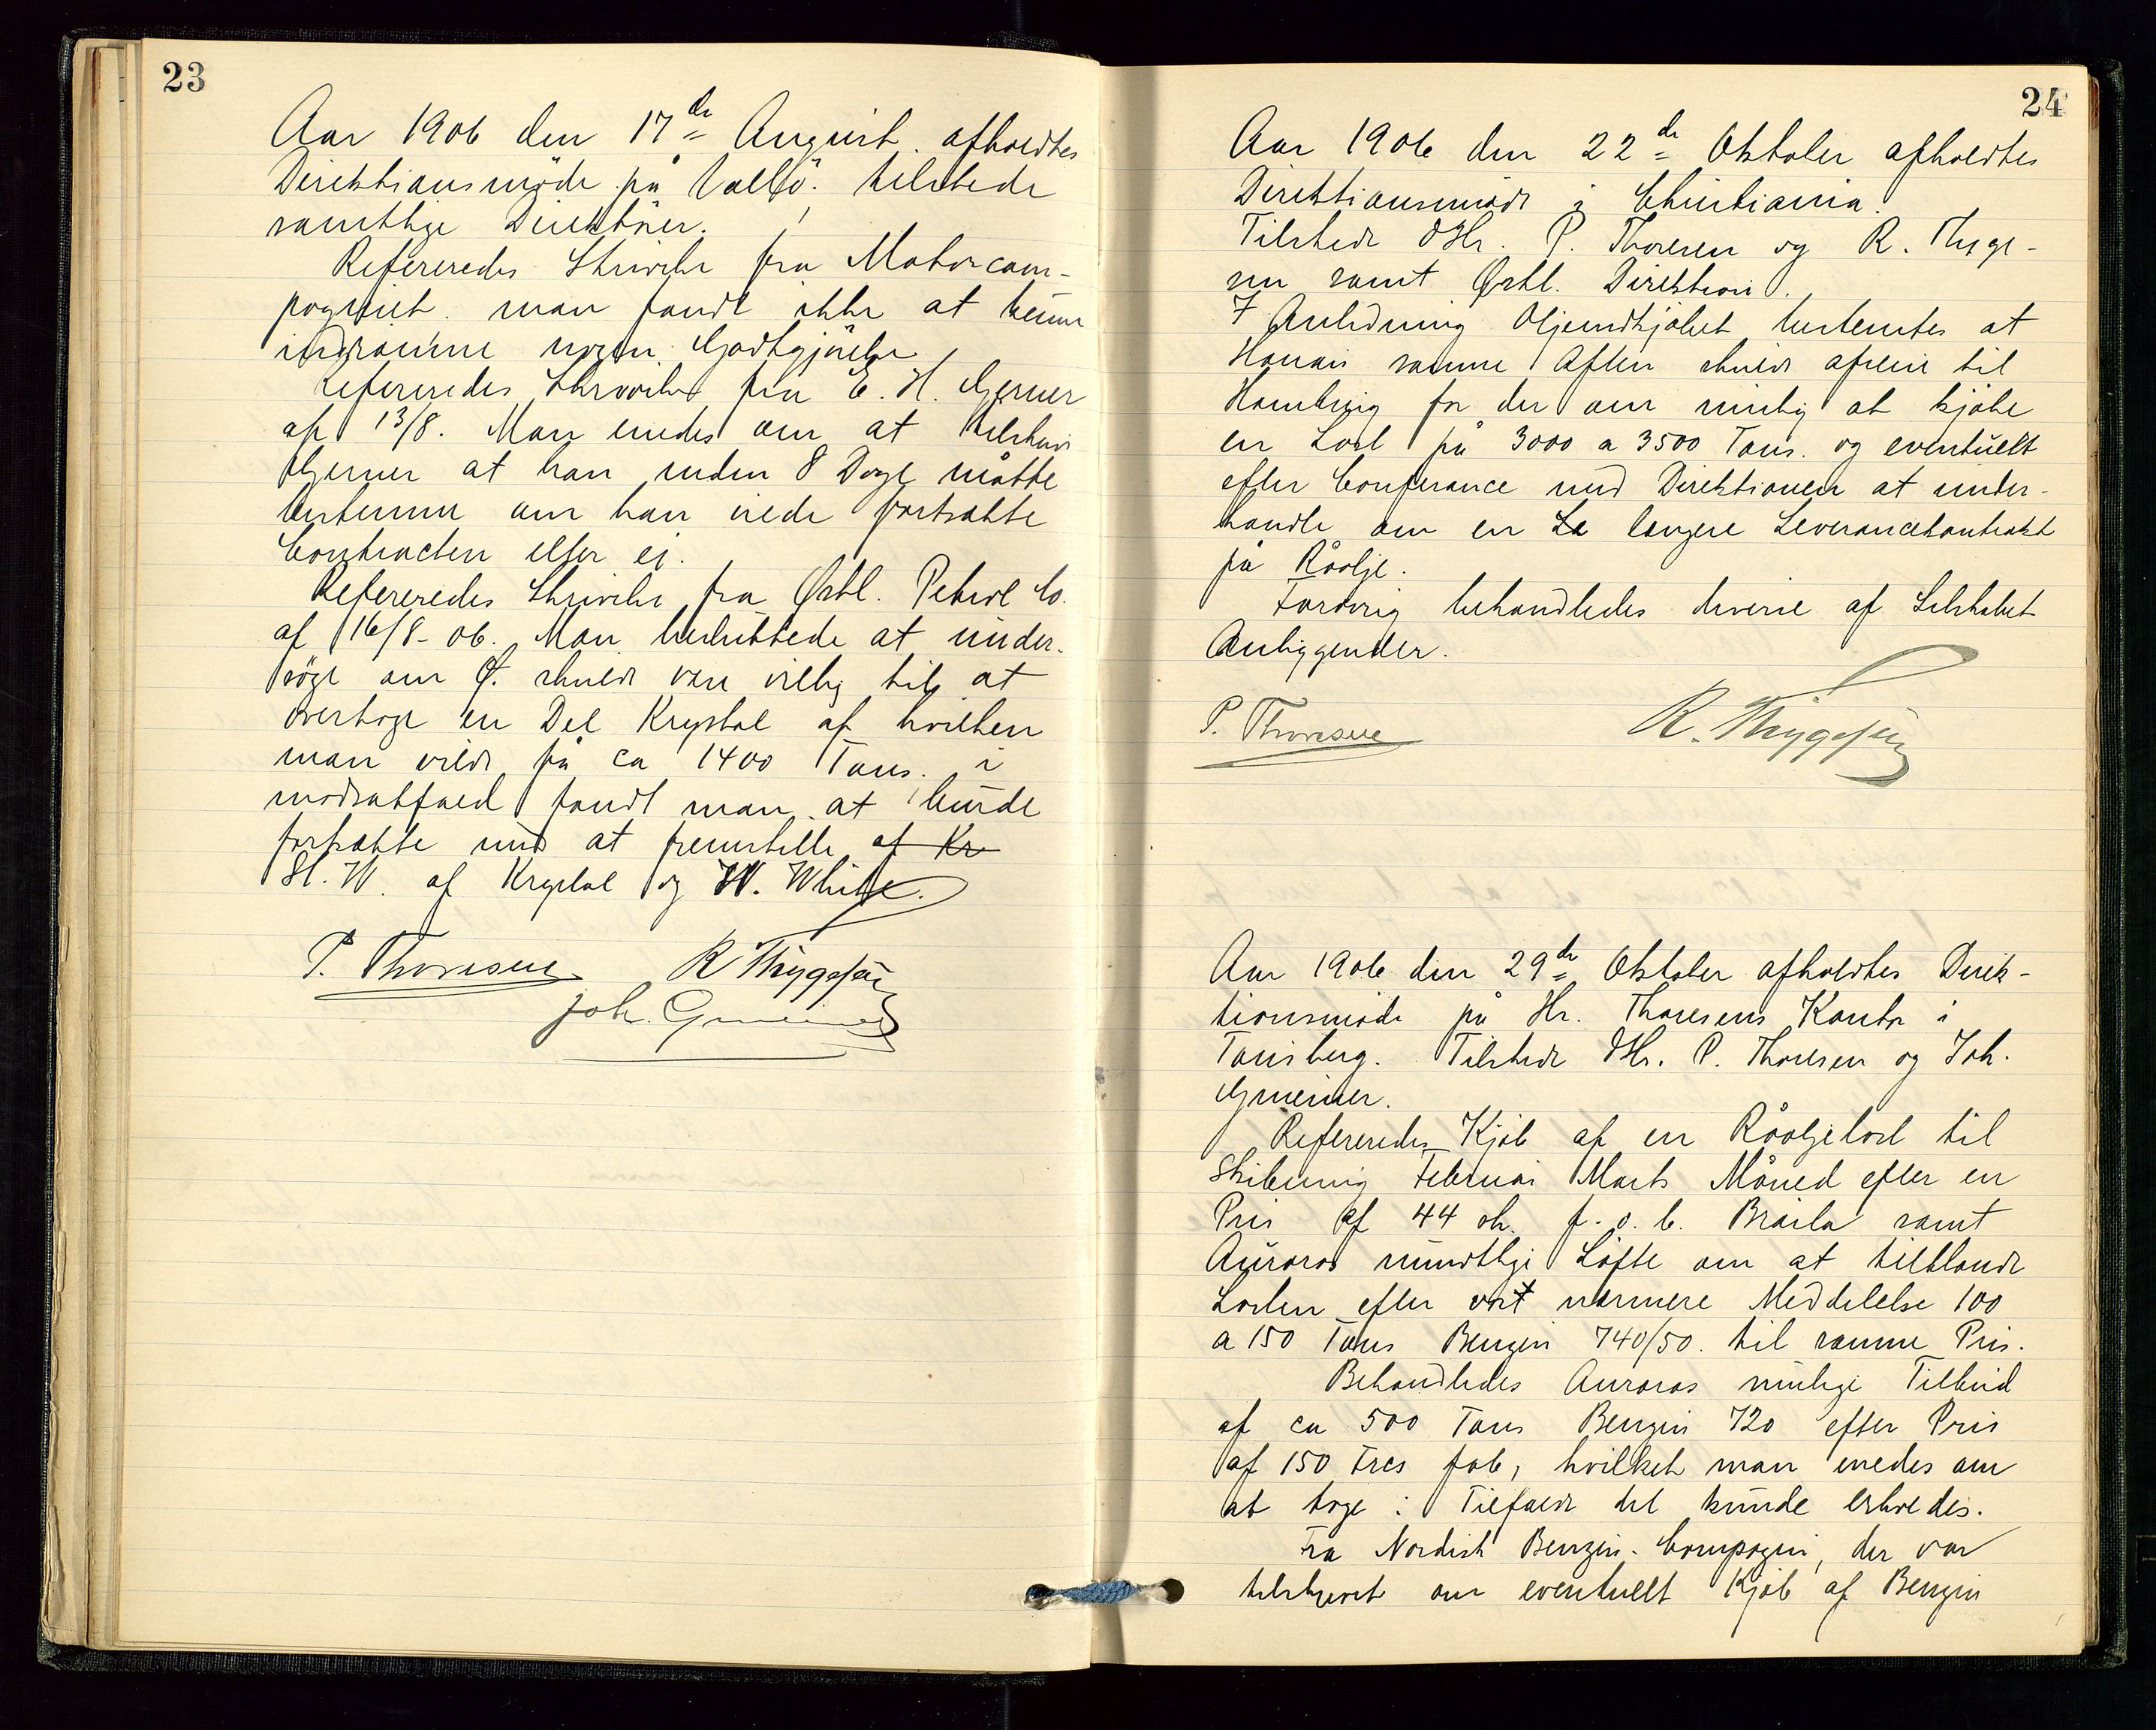 23
Aar 1906 den 17de August. afholdtes
Direktionsmøde på Vallö. tilstede
samtlige Direktörer.
Refereredes Skrivelse fra Motorcom-
pagniet. man fandt ikke at kunne
indrömme nogen Godtgjörelse.
Refereredes Skrivelse fra E. H. Gerner
af 13/8. Man enedes om at tilskrive
Gerner at han inden 8 Dage måtte
bestemme om han vilde fortsætte
Contracten eller ej.
Refereredes Skrivelse fra Østl. Petrol Co.
af 16/8-06. Man besluttede at under-
söge om Ø. skulde være villig til at
overtage en Del Krystal af hvilken
man vilde få ca 1400 Tons. i
modsatfald fandt man at burde
fortsætte med at fremstille af Kr
St. W. af Krystal og W. White.
P. Thoresen R Thygesen
Joh. Gmeiner
24
Aar 1906 den 22de Oktober afholdtes
Direktionsmøde i Christiania.
Tilstede DHr. P. Thoresen og R. Thyge-
sen samt Østl. Direktion.
I Anledning Oljeindkjøbet bestemtes at
samme Aften skulde afreise til
Hamburg for der om mulig at kjøbe
en Last på 3000 a 3500 Tons. og eventuelt
efter Conferance med Direktionen at under-
handle om en Le længere Leverancekontrakt
på Råolje.
Forøvrig behandledes diverse af Selskabet
Anliggender.
P. Thoresen R. Thygesen
Aar 1906 den 29de Oktober afholdtes Direk-
tionsmøde på Hr. Thoresens Kontor i
Tønsberg. Tilstede DHr. P. Thoresen og Joh.
Gmeiner.
Refereredes Kjøb af en Råoljelast til
Skibning Februar Marts Måned efter en
Pris af 44 sh. f.o.b. Braila samt
Auroras mundtlige Løfte om at tilblande
Lasten efter vort nærmere Meddelelse 100
a 150 Tons Benzin 740/50. til samme Pris.
Behandledes Auroras mulige Tilbud
af ca 500 Tons Benzin 720 efter Pris
af 150 Frcs fob, hvilket man enedes om
at tage i Tilfælde det kunde erholdes.
Fra Nordisk Benzin-Compagni, der var
tilskrevet om eventuelt Kjøb af Benzin